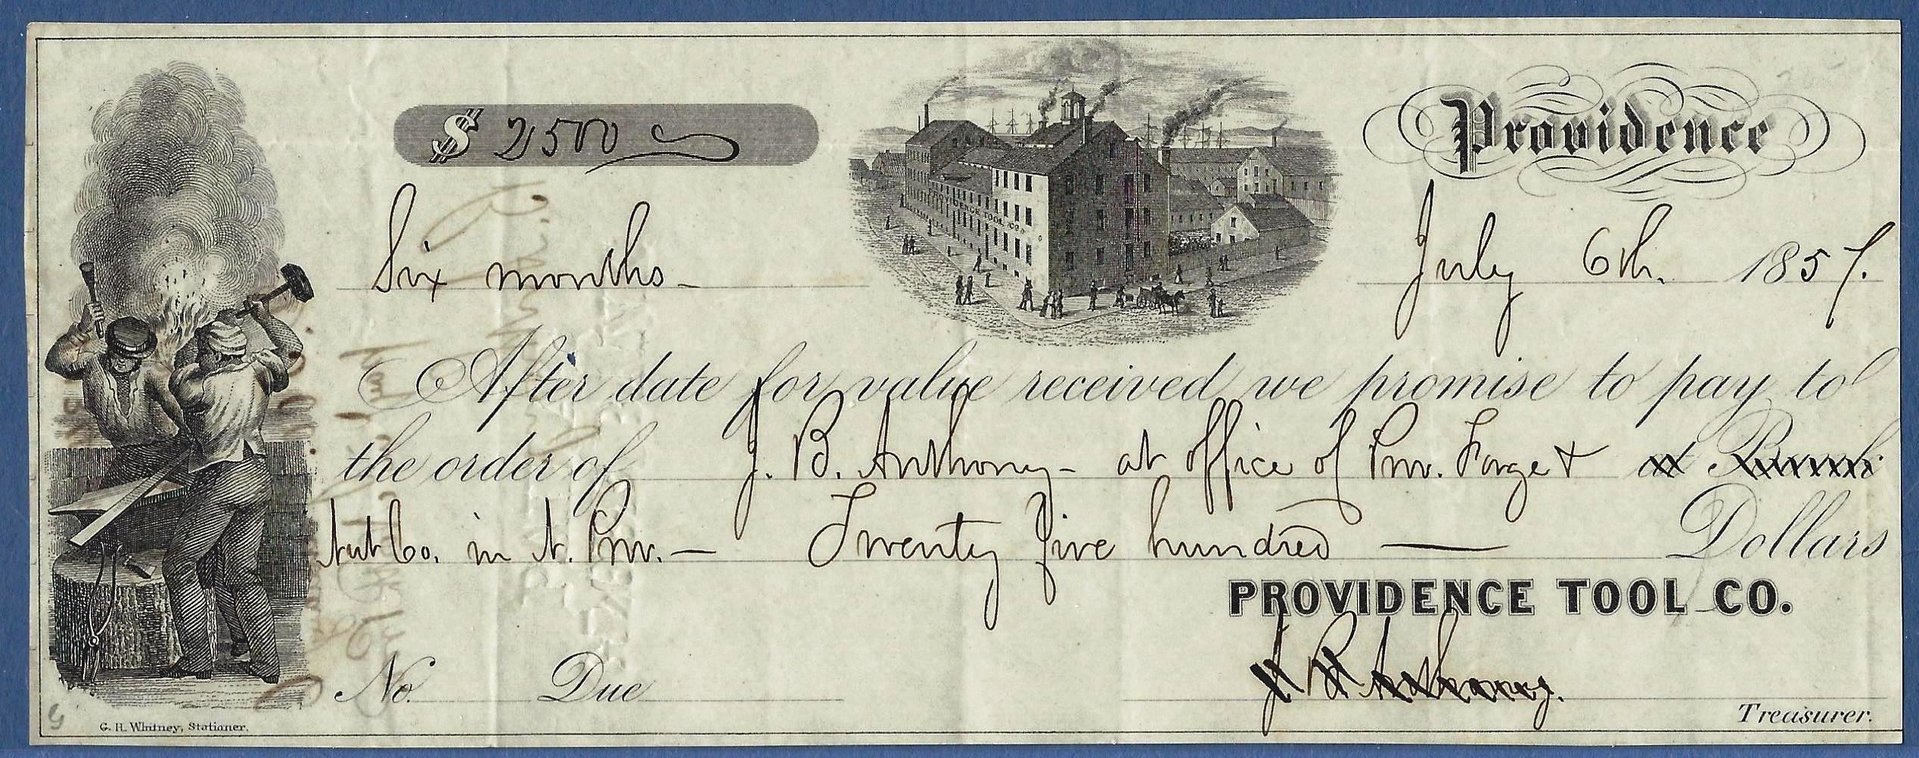 $ 2500
Providence
PROVIDENCE TOOL CO.
Six months - July 6th. 1857.
After date for value received we promise to pay to
the order of J. B. Anthony - at office of Prov. Forge & at
Nut Co. in N. Prov. - Twenty five hundred — Dollars
PROVIDENCE TOOL CO.
J. B. Anthony.
No. Due
Treasurer.
G. H. Whitney, Stationer.